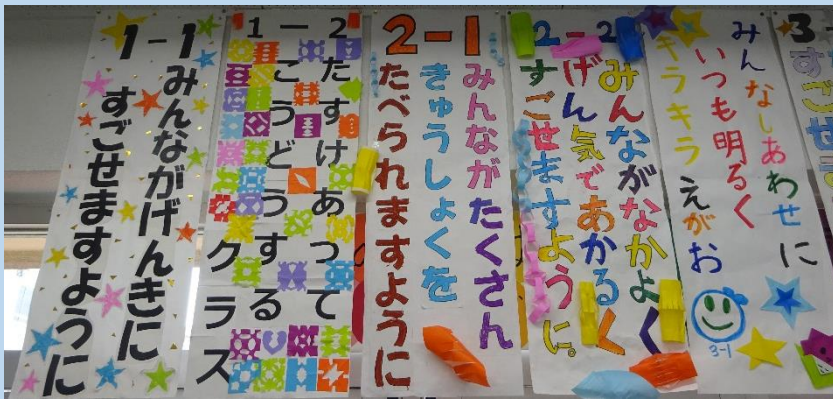 1-1
みんながげんきに
すごせますように
1-2
たすけあって
こうどうする
クラス
2-1
みんながたくさん
きゅうしょくを
たべられますように
2-2
みんながなかよく
げん気であかるく
すごせますように。
みんなしあわせに
いつも明るく
キラキラえがお
3-1
3
すごせ